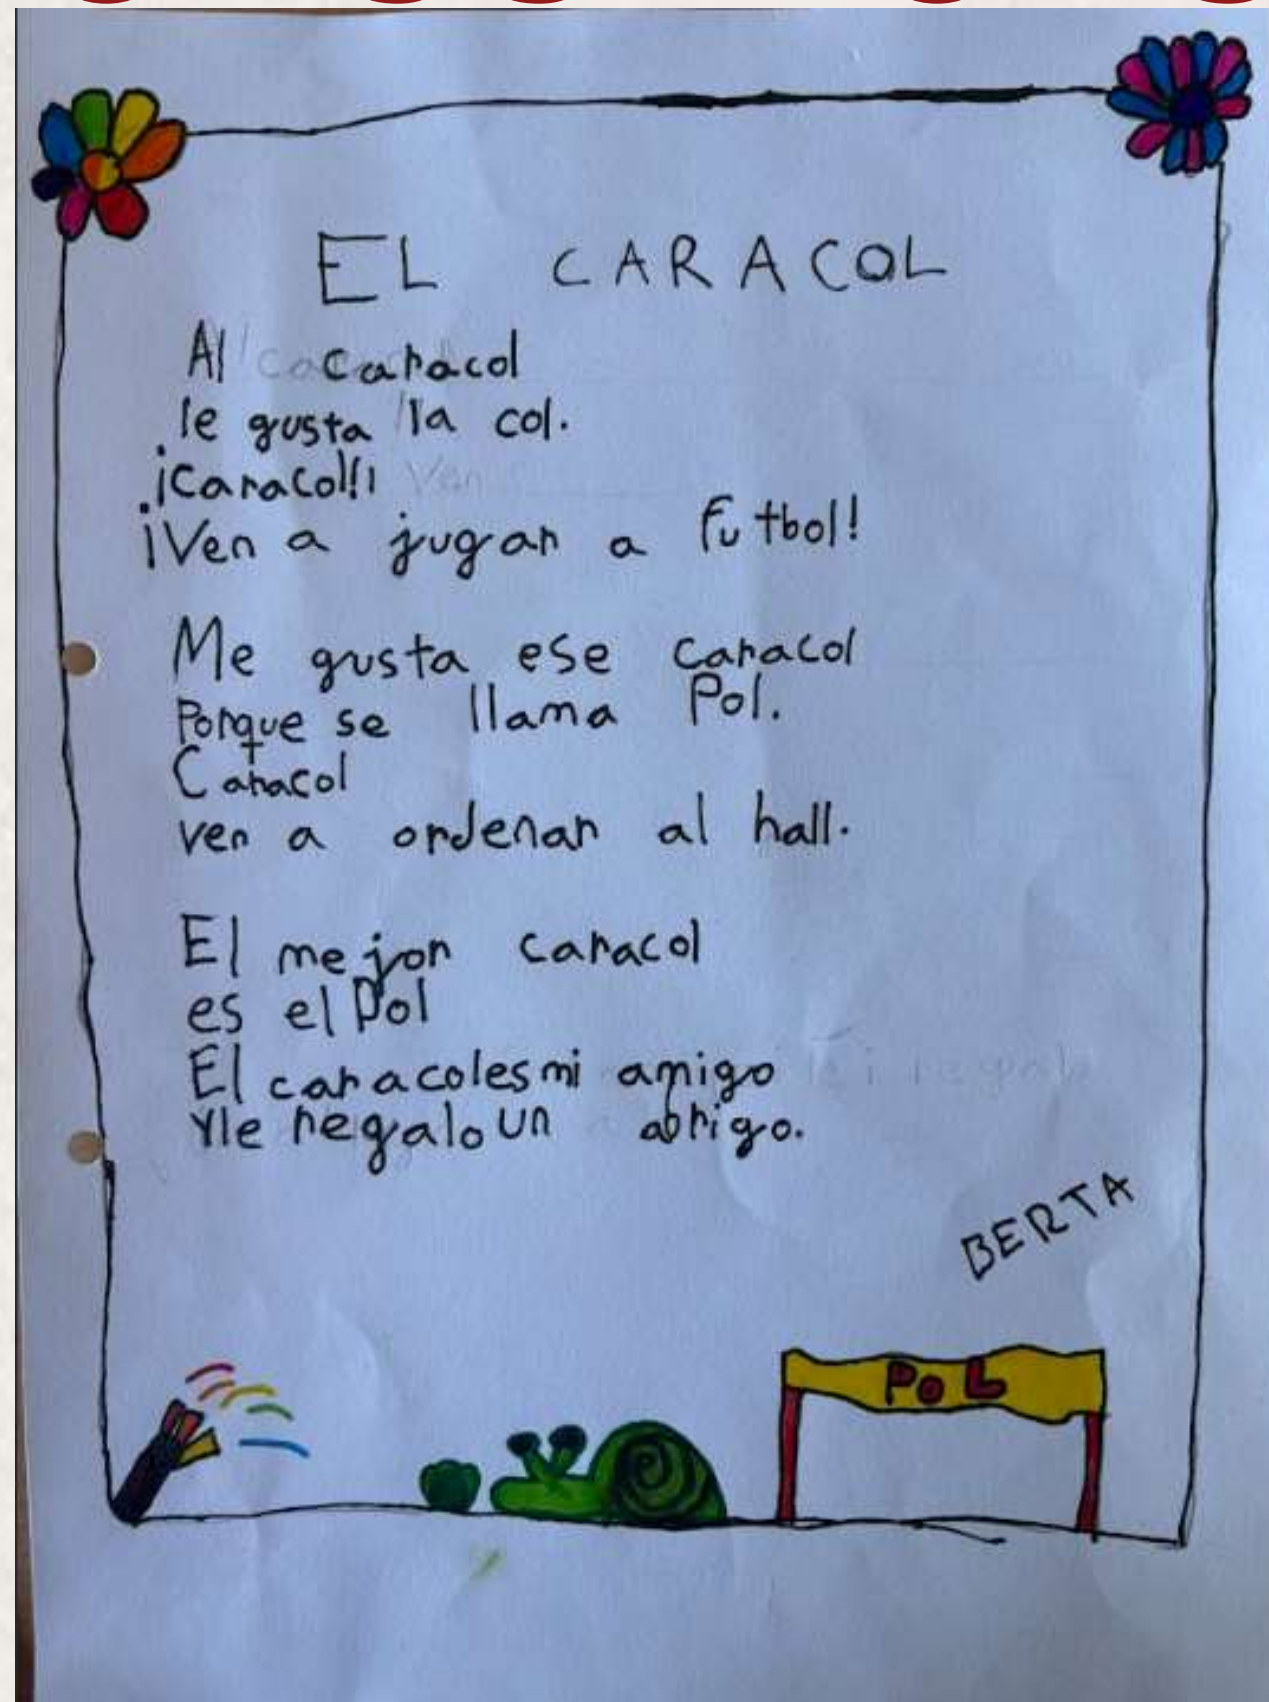 EL CARACOL
Al caracol
le gusta la col.
¡Caracol!
¡Ven a jugar a futbol!
Me gusta ese caracol
Porque se llama Pol.
Caracol
ven a ordenar al hall.
El mejor caracol
es el Pol
El caracol es mi amigo
Y le regalo un abrigo.
BERTA
POL